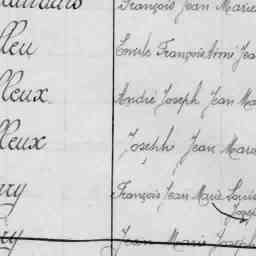 François Jean Marie
lleu Emile François Aimé Jea
lleux André Joseph Jean Ma
lleux Joseph Jean Marie
François Jean Marie Louis
Joseph
Jean Marie Joseph